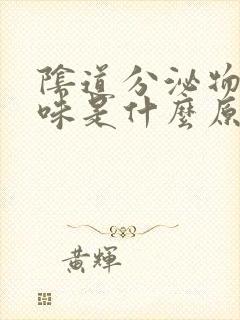 陰道分泌物
味是什麼原
黃輝